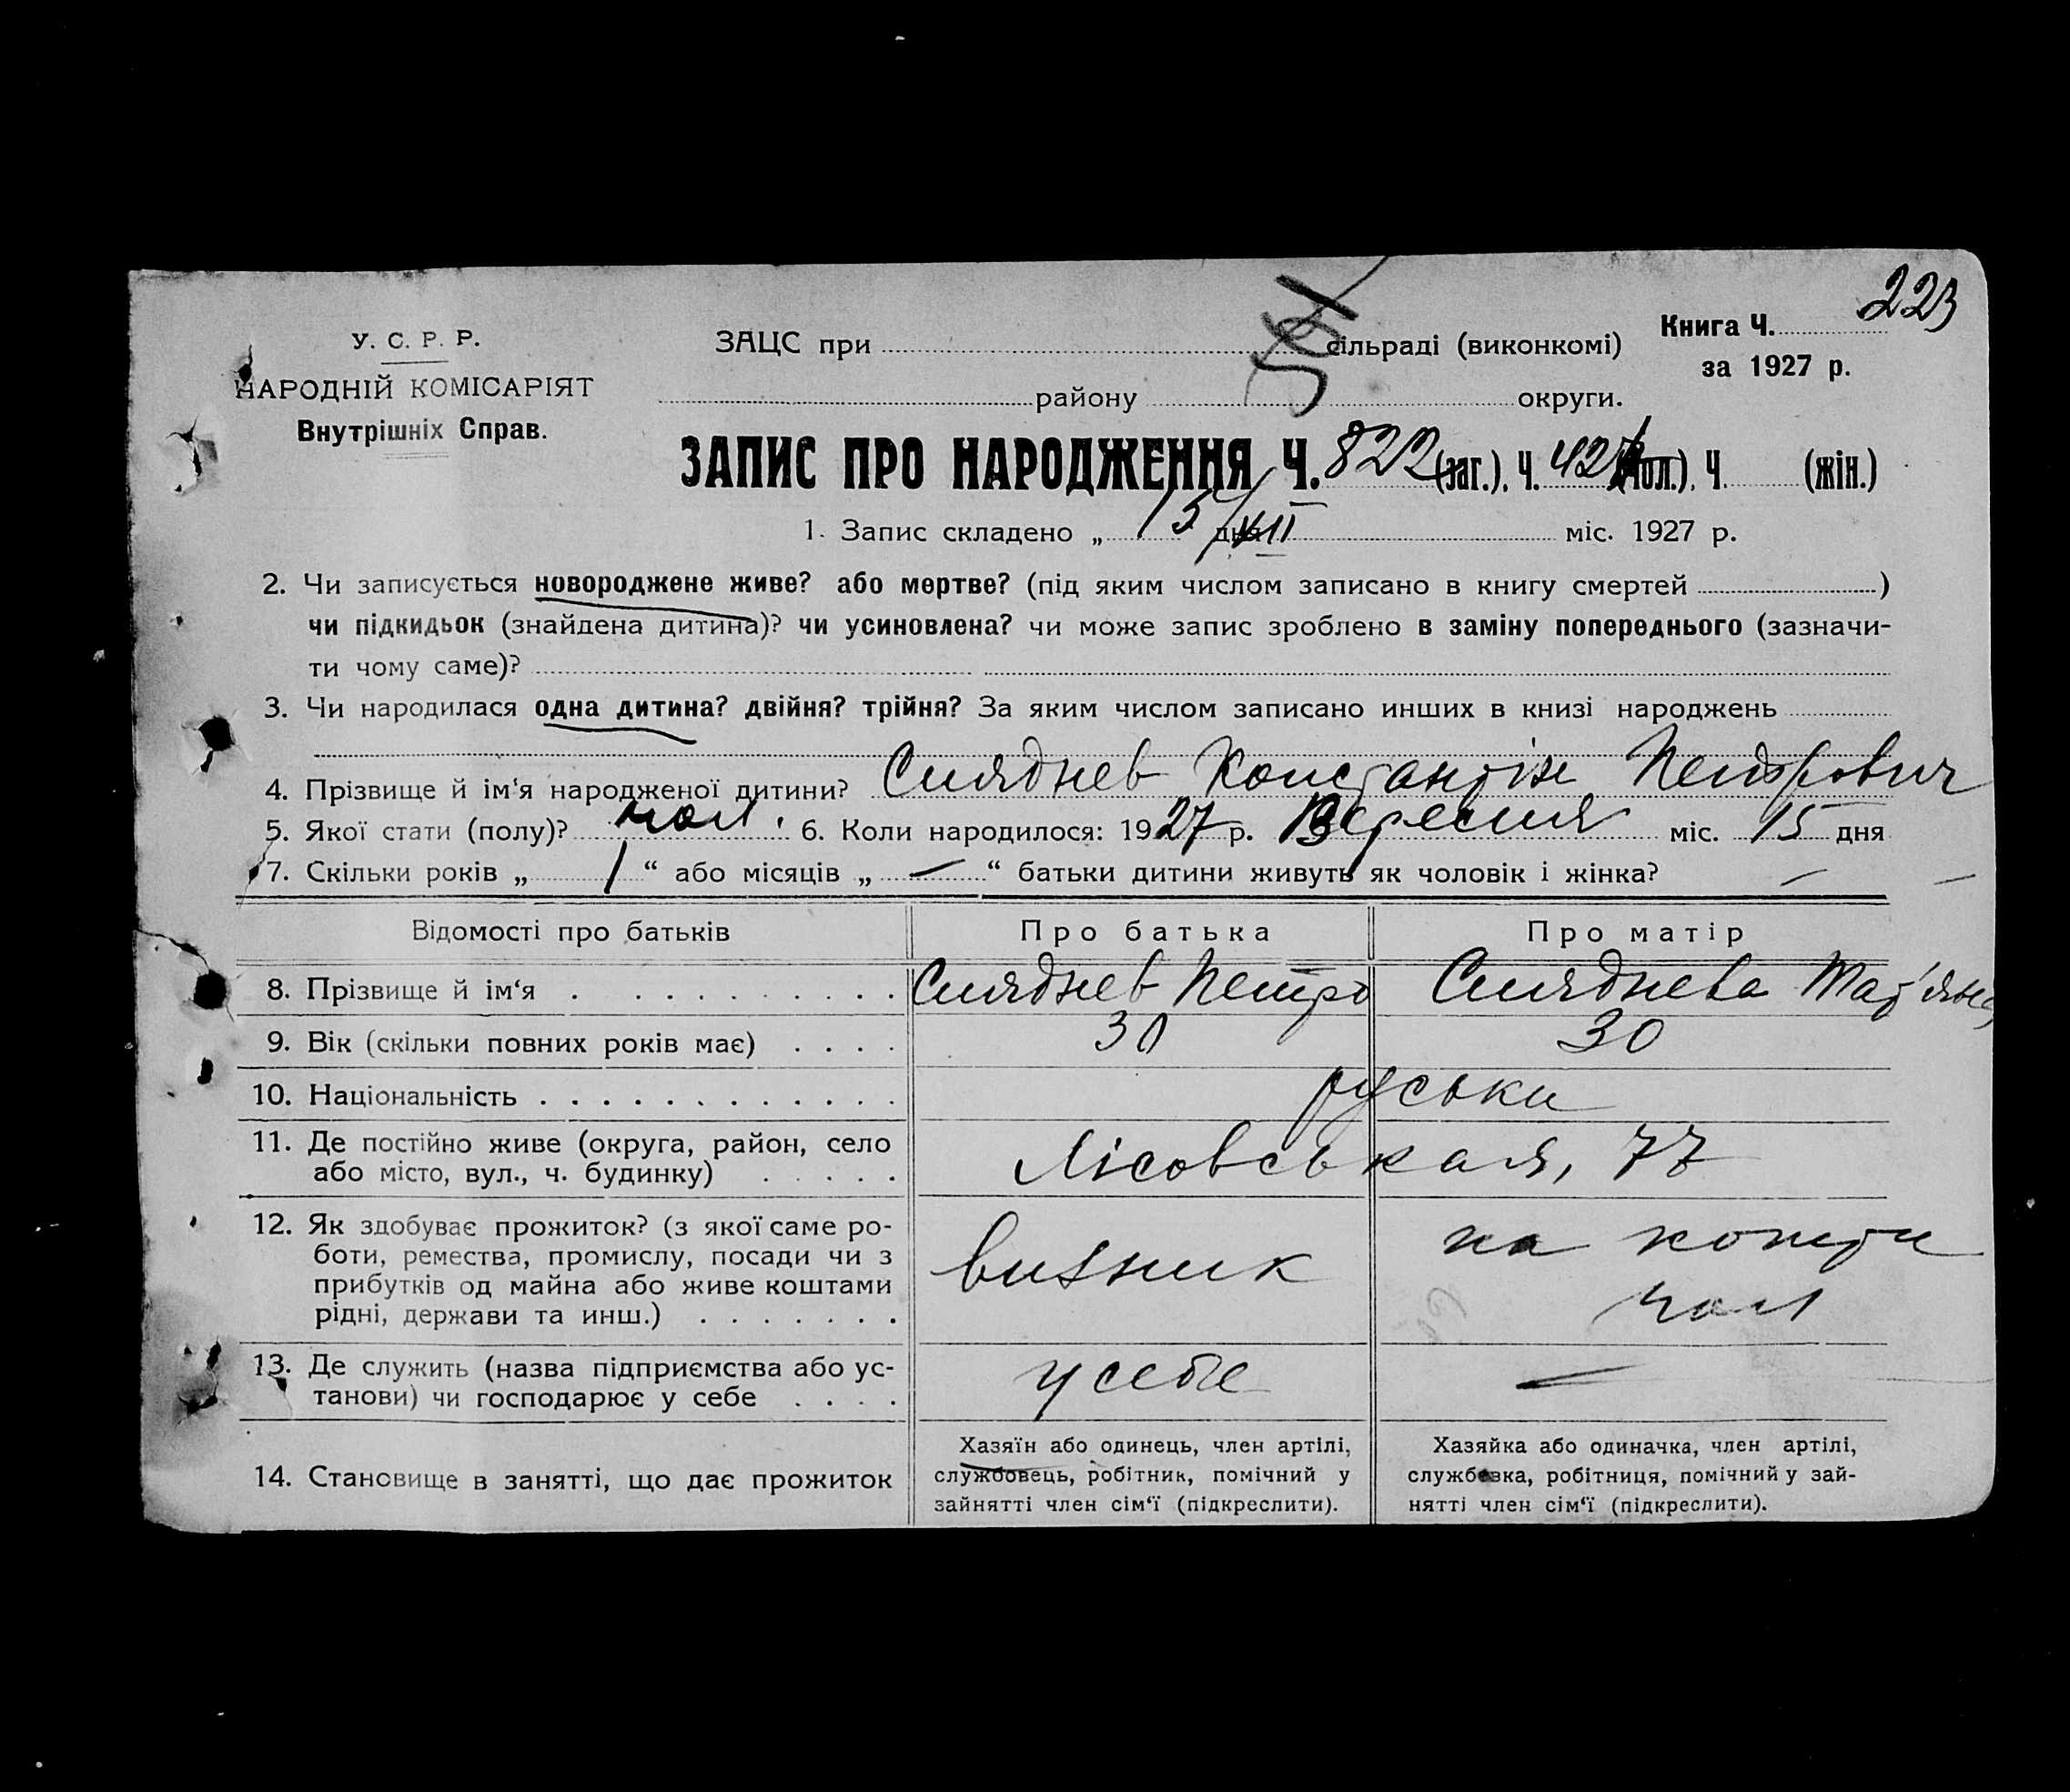 223
У. С. Р. Р.
НАРОДНІЙ КОМІСАРІЯТ
Внутрішніх Справ.
ЗАЦС при сільраді (виконкомі)
району округи.
Книга Ч.
за 1927 р.
ЗАПИС ПРО НАРОДЖЕННЯ Ч. 822 (заг.). Ч. 421 (чол.). Ч. (жін.)
1. Запис складено „ 15/XII дня міс. 1927 р.
2. Чи записується новороджене живе? або мертве? (під яким числом записано в книгу смертей )
чи підкидьок (знайдена дитина)? чи усиновлена? чи може запис зроблено в заміну попереднього (зазначи-
ти чому саме)?
3. Чи народилася одна дитина? двійня? трійня? За яким числом записано инших в книзі народжень
4. Прізвище й ім‘я народженої дитини? Сляднев Константін Петрович
5. Якої стати (полу)? чол. 6. Коли народилося: 1927 р. Вересня міс. 15 дня
7. Скільки років „ 1 “ або місяців „ — “ батьки дитини живуть як чоловік і жінка? —
Відомості про батьків Про батька Про матір
8. Прізвище й ім‘я Сляднев Петро Сляднева Тат'яна
9. Вік (скільки повних років має) 30 30
10. Національність руськи
11. Де постійно живе (округа, район, село
або місто, вул., ч. будинку) Лісовськая, 77
12. Як здобуває прожиток? (з якої саме ро-
боти, ремества, промислу, посади чи з
прибутків од майна або живе коштами
рідні, держави та инш.) визник на кошти
чол
13. Де служить (назва підприємства або ус-
танови) чи господарює у себе у себе —
14. Становище в занятті, що дає прожиток
Хазяїн або одинець, член артілі,
службовець, робітник, помічний у
зайнятті член сім‘ї (підкреслити).
Хазяйка або одиначка, член артілі,
службовка, робітниця, помічний у зай-
нятті член сім‘ї (підкреслити).